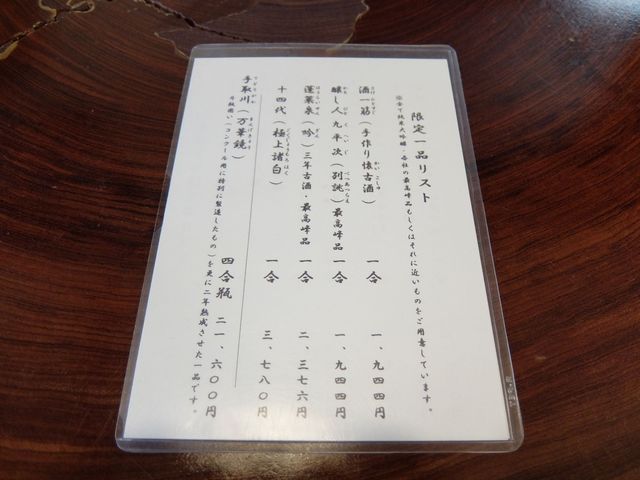 限定一品リスト
※全て純米大吟醸・各社の最高峰品もしくはそれに近いものをご用意しています。
酒一筋（手作り懐古酒） 一合 一、九四四円
醸し人九平次（別誂）最高峰品 一合 一、九四四円
蓬莱泉（吟）三年古酒・最高峰品 一合 二、三七六円
十四代（極上諸白） 一合 三、七八〇円
手取川（万華鏡） 四合瓶 二一、六〇〇円
斗瓶囲い・コンクール用に特別に製造したもの）を更に二年熟成させた一品です。